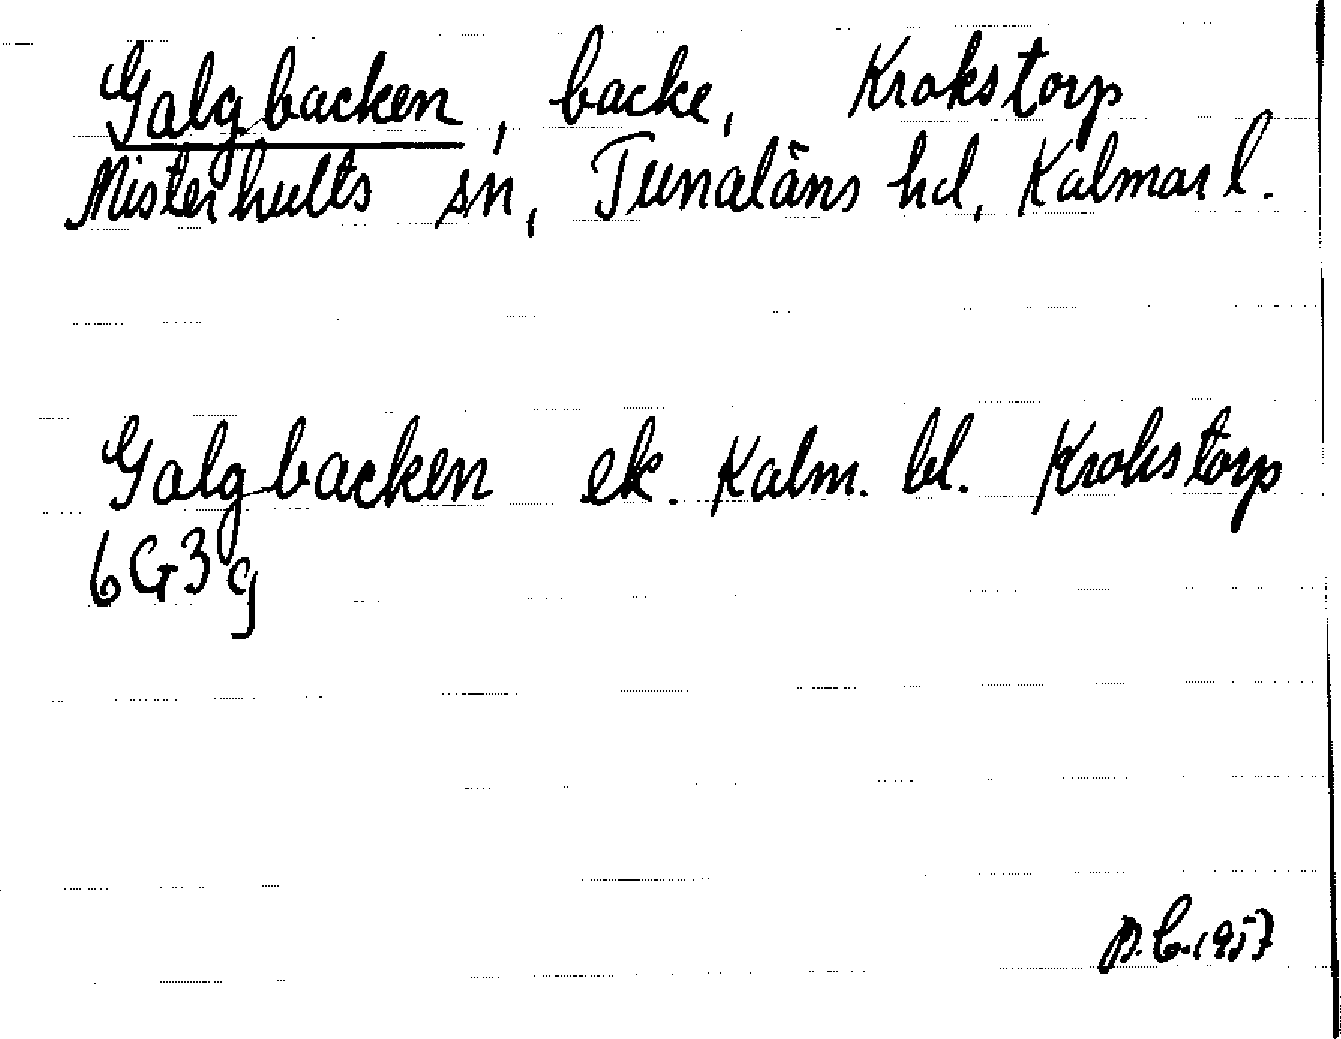 Galgbacken, backe, Krokstorp
Misterhults sn, Tunaläns hd, Kalmar l.
Galgbacken ek. Kalm. bl. Krokstorp
6G3g
P.L. 1957